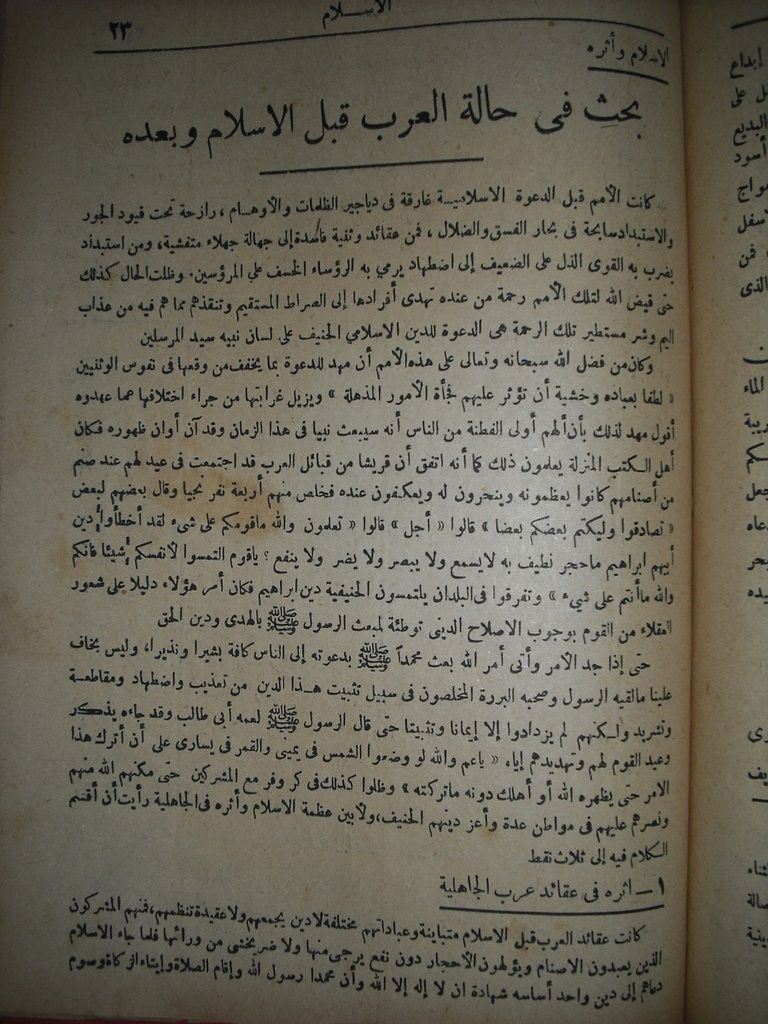 الاسلام
٢٣
الاسلام وأثره
بحث في حالة العرب قبل الاسلام وبعده
كانت الأمم قبل الدعوة الاسلامية غارقة فى دياجير الظلمات والأوهام ، رازحة تحت قيود الجور
والاستبداد سابحة فى بحار الفسق والضلال ، فمن عقائد وثنية فاسدة إلى جهالة جهلاء متفشية ، ومن استبداد
يضرب به القوى الذل على الضعيف إلى اضطهاد يرمي به الرؤساء الخسف على المرؤسين. وظلت الحال كذلك
حتى قيض الله لتلك الأمم رحمة من عنده تهدى أفرادها إلى الصراط المستقيم وتنقذهم مما هم فيه من عذاب
اليم وشر مستطير تلك الرحمة هى الدعوة للدين الاسلامي الحنيف على لسان نبيه سيد المرسلين
وكان من فضل الله سبحانه وتعالى على هذه الأمم أن مهد للدعوة بما يخفف من وقعها فى نفوس الوثنيين
« لطفا بعباده وخشية أن تؤثر عليهم فجأة الأمور المذهلة » ويزيل غرابتها من جراء اختلافها عما عهدوه
أقول مهد لذلك بأن ألهم أولى الفطنة من الناس أنه سيبعث نبيا فى هذا الزمان وقد آن أوان ظهوره فكان
أهل الكتب المنزلة يعلمون ذلك كما أنه اتفق أن قريشا من قبائل العرب قد اجتمعت فى عيد لهم عند صنم
من أصنامهم كانوا يعظمونه وينحرون له ويعكفون عنده فخلص منهم أربعة نفر نجيا وقال بعضهم لبعض
« تصادقوا وليكتم بعضكم بعضا » قالوا « أجل » قالوا « تعلمون والله ماقومكم على شىء لقد أخطأوا دين
أبيهم ابراهيم ماحجر نطيف به لايسمع ولا يبصر ولا يضر ولا ينفع ؟ ياقوم التمسوا لأنفسكم شيئا فانكم
والله ماأنتم على شيىء » وتفرقوا فى البلدان يلتمسون الحنيفية دين ابراهيم فكان أمر هؤلاء دليلا على شعور
العقلاء من القوم بوجوب الاصلاح الدينى توطئة لمبعث الرسول ﷺ بالهدى ودين الحق
حتى إذا جد الأمر وأتى أمر الله بعث محمداً ﷺ بدعوته إلى الناس كافة بشيرا ونذيرا، وليس بخاف
علينا مالقيه الرسول وصحبه البررة المخلصون فى سبيل تثبيت هذا الدين من تعذيب واضطهاد ومقاطعة
وتشريد ولكنهم لم يزدادوا إلا إيمانا وتثبيتا حتى قال الرسول ﷺ لعمه أبى طالب وقد جاءه يذكر
وعيد القوم لهم وتهديدهم إياه « ياعم والله لو وضعوا الشمس فى يمينى والقمر فى يسارى على أن أترك هذا
الامر حتى يظهره الله أو أهلك دونه ماتركته » وظلوا كذلك فى كر وفر مع المشركين حتى مكنهم الله منهم
ونصرهم عليهم فى مواطن عدة وأعز دينهم الحنيف، ولأبين عظمة الاسلام وأثره فى الجاهلية رأيت أن أقسم
الكلام فيه إلى ثلاث نقط
١ – اثره فى عقائد عرب الجاهلية
كانت عقائد العرب قبل الاسلام متباينة وعباداتهم مختلفة لادين يجمعهم ولا عقيدة تنظمهم، فمنهم المشركون
الذين يعبدون الاصنام ويؤلهون الأحجار دون نفع يرجى منها ولا ضر يخشى من ورائها فلما جاء الاسلام
دعاهم إلى دين واحد أساسه شهادة ان لا إله إلا الله وأن محمدا رسول الله وإقام الصلاة وإيتاء الزكاة وصوم